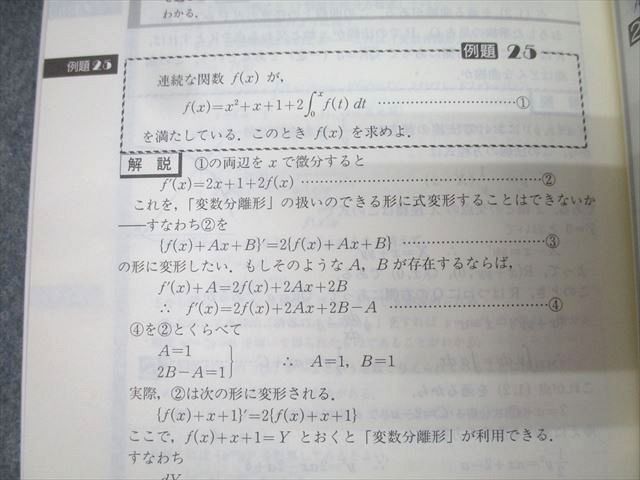 わかる.
例題 25
例題 25
連続な関数 f(x) が,
f(x)=x²+x+1+2∫₀ˣ f(t) dt ……………………………①
を満たしている. このとき f(x) を求めよ.
解 説 ①の両辺を x で微分すると
f′(x)=2x+1+2f(x) ……………………………………②
これを,「変数分離形」の扱いのできる形に式変形することはできないか
——すなわち②を
{f(x)+Ax+B}′=2{f(x)+Ax+B} ……………………③
の形に変形したい. もしそのような A, B が存在するならば,
f′(x)+A=2f(x)+2Ax+2B
∴ f′(x)=2f(x)+2Ax+2B−A ……………………④
④を②とくらべて
A=1
2B−A=1} ∴ A=1, B=1
実際, ②は次の形に変形される.
{f(x)+x+1}′=2{f(x)+x+1}
ここで, f(x)+x+1=Y とおくと「変数分離形」が利用できる.
すなわち
dY